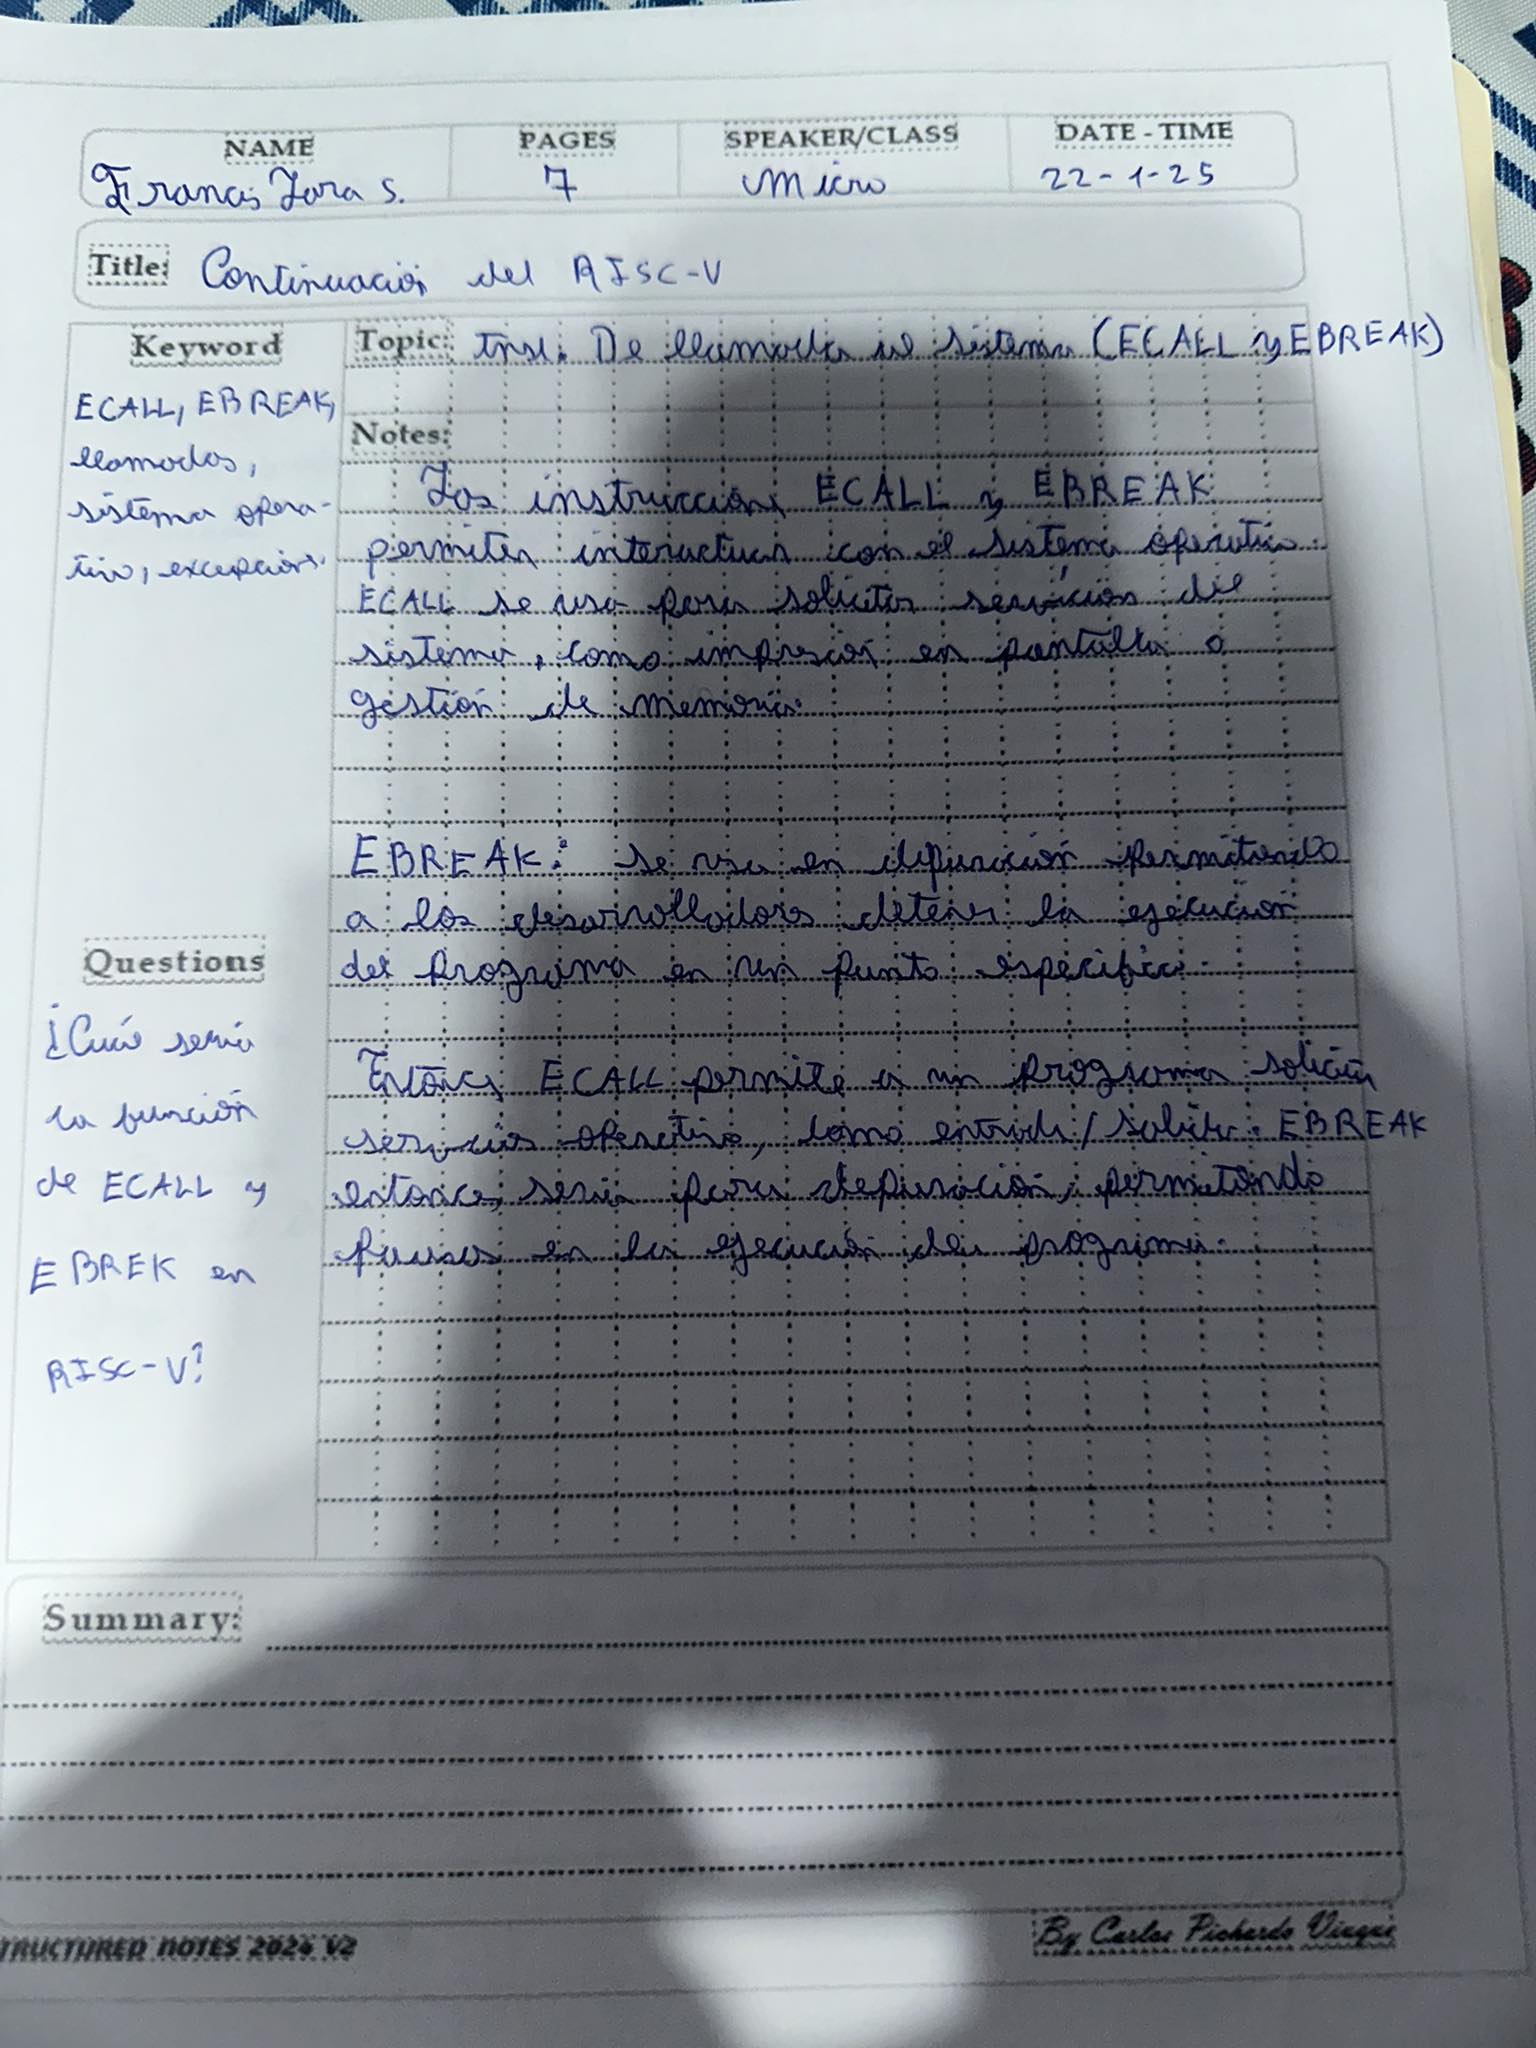 NAME PAGES SPEAKER/CLASS DATE - TIME
Francis Jara S. 7 Micro 22-1-25
Title: Continuación del RISC-V
Keyword
ECALL, EBREAK,
llamadas,
sistema opera-
tivo, excepcion.
Topic: Inst. De llamada al sistema (ECALL y EBREAK)
Notes:
Las instruccion ECALL y EBREAK
permiten interactuar con el sistema operativo.
ECALL se usa para solicitar servicios del
sistema, como impresión en pantalla o
gestión de memoria.
EBREAK: se usa en depuración permitiendo
a los desarrolladores detener la ejecución
del programa en un punto especifico.
Entonces ECALL permite a un programa solicitar
servicios operativo, como entrada/salida. EBREAK
entonce, seria para depuración, permitondo
pausas en la ejecución del programa.
Questions
¿Cuál seria
la función
de ECALL y
EBREK en
RISC-V?
Summary:
TRUCTURED NOTES 2024 V2
By Carlos Pichardo Viuque